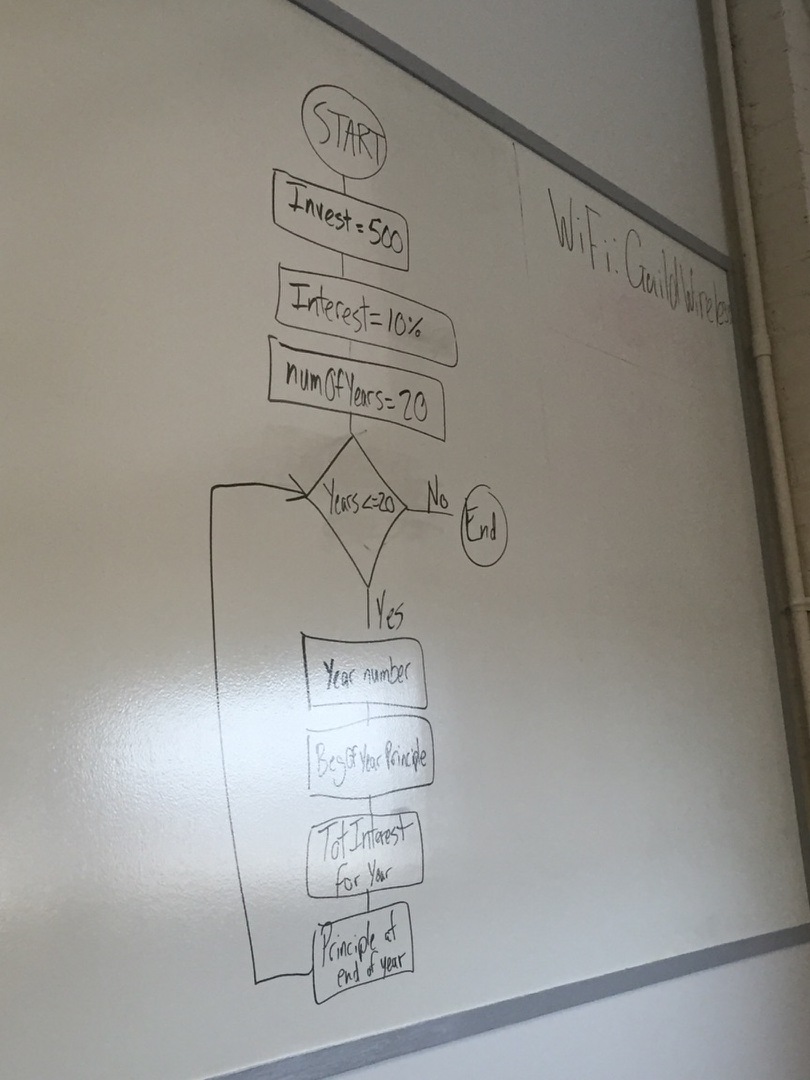 START
Invest=500
Interest=10%
numOfYears=20
Years<=20
No
End
Yes
Year number
BegOfYear Principle
Tot Interest
for Year
Principle at
end of year
WiFi: GuildWireless